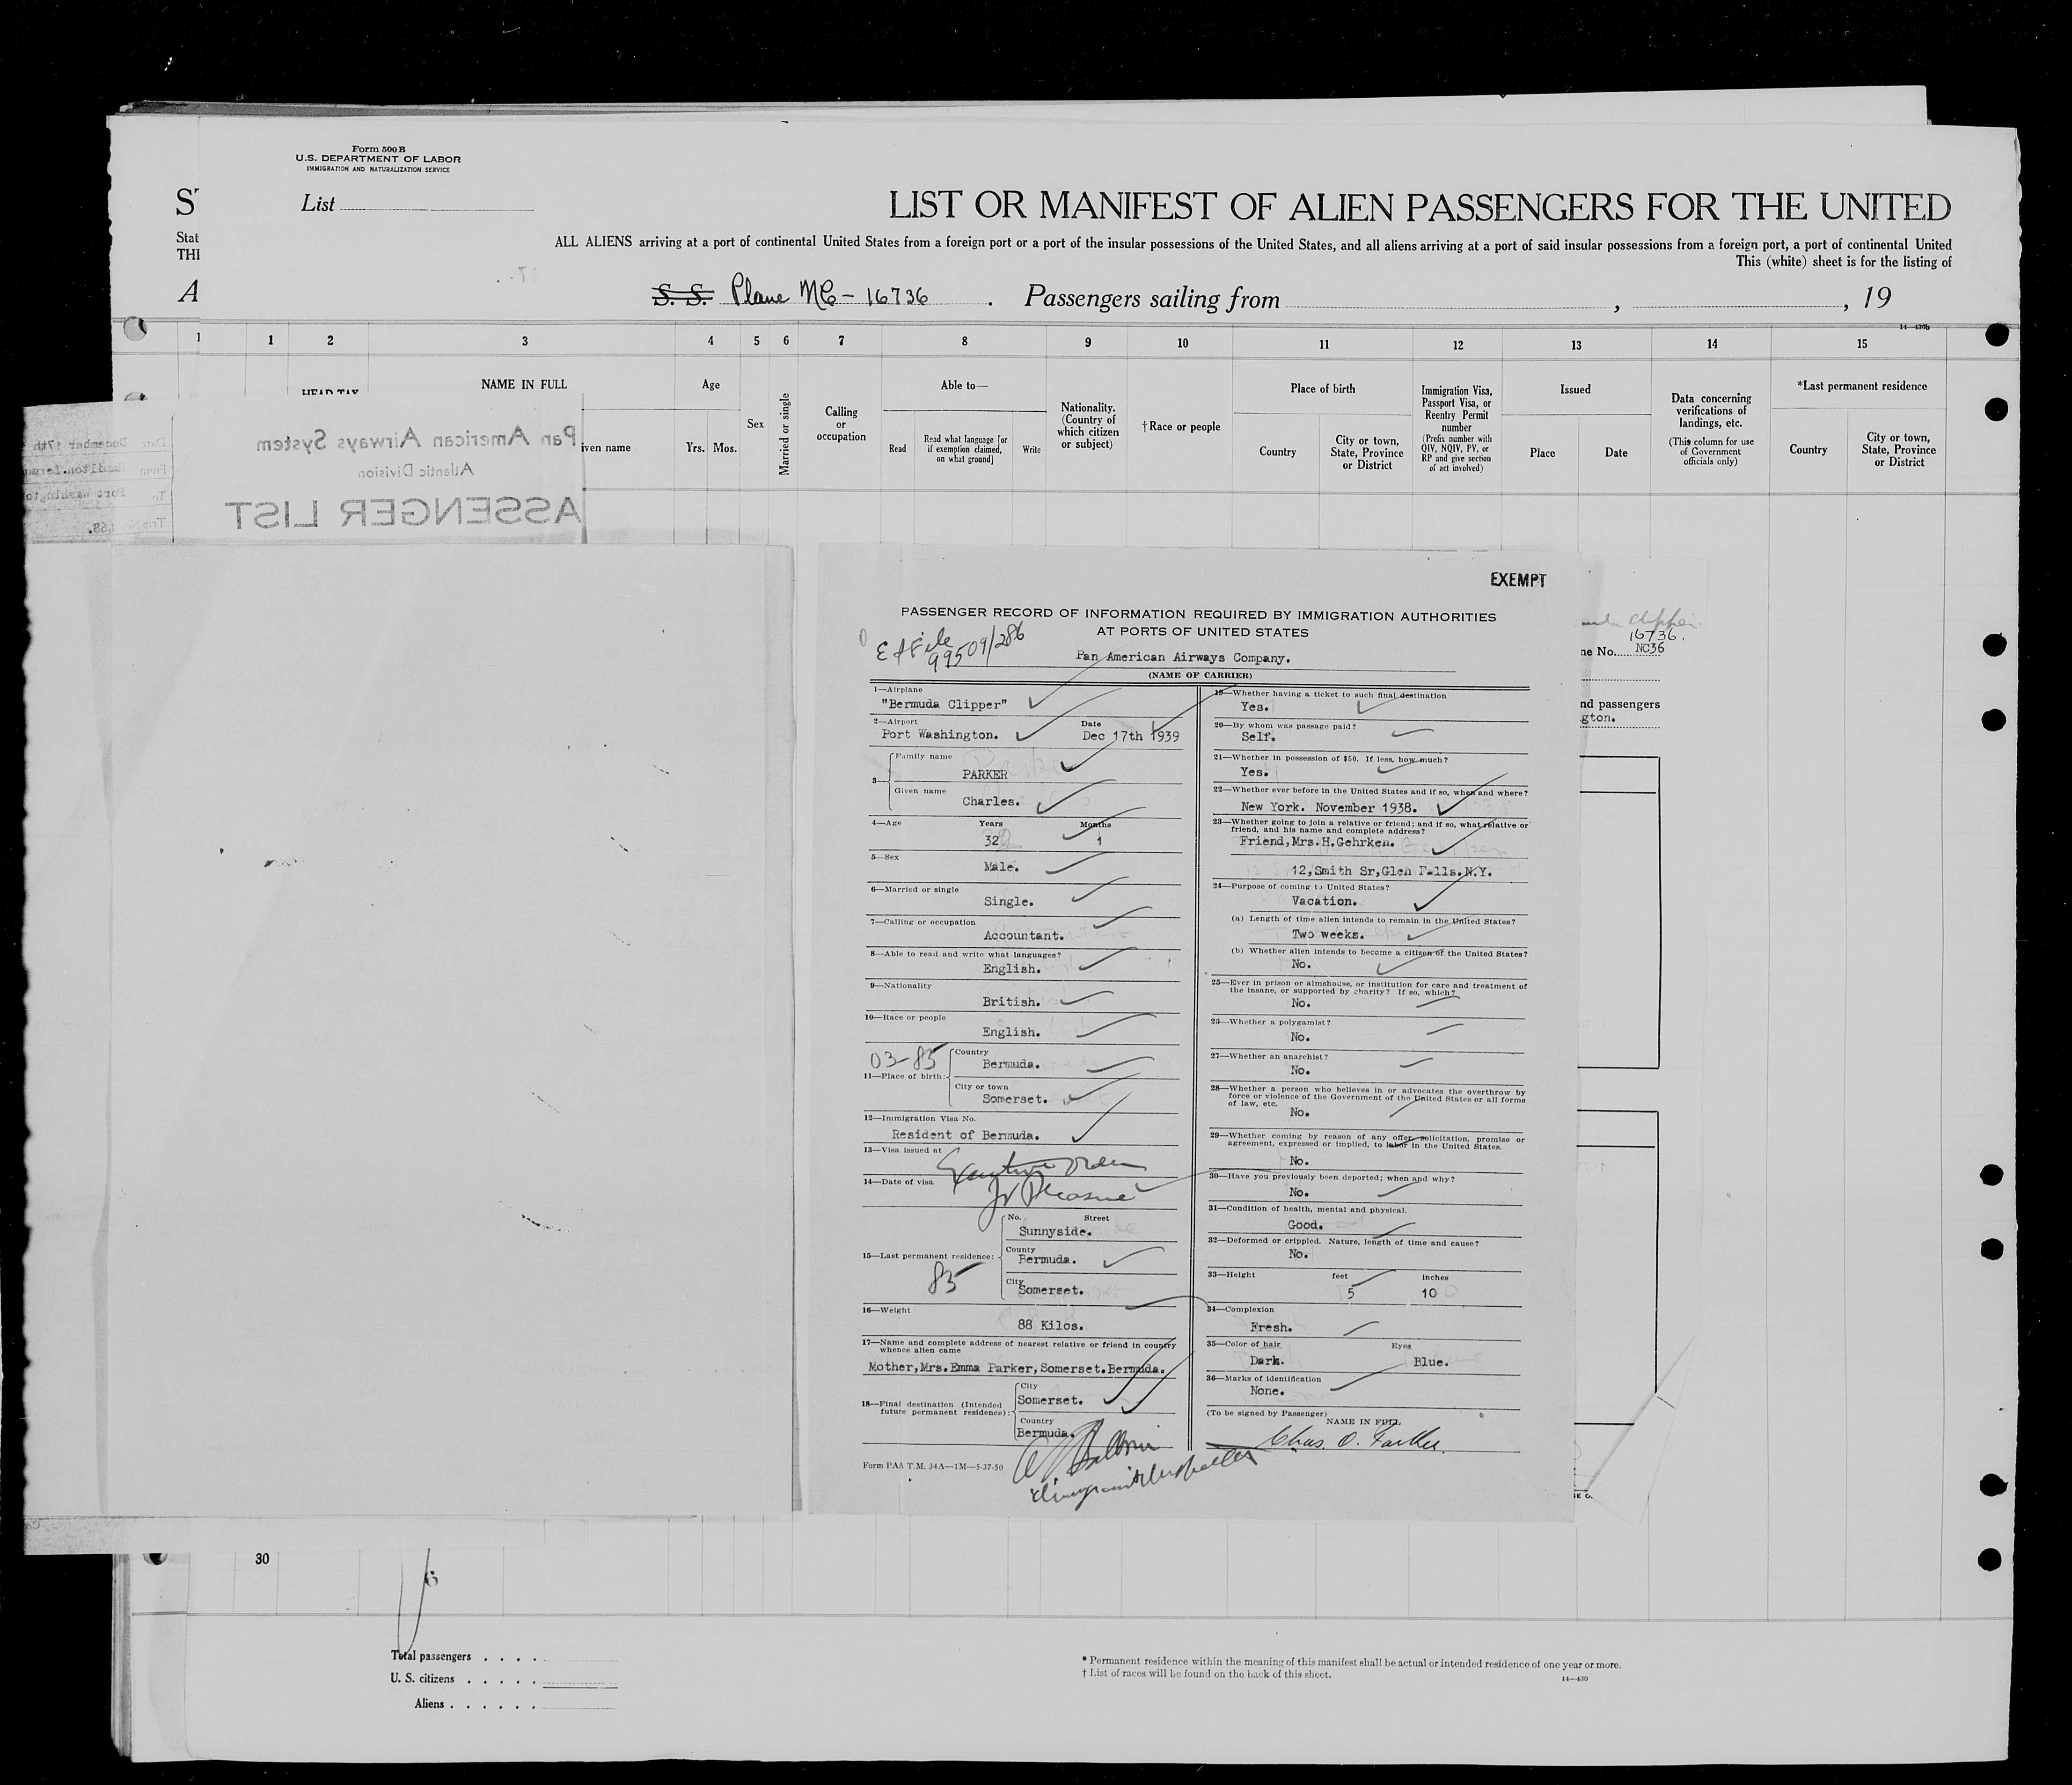 Form 500B
U.S. DEPARTMENT OF LABOR
IMMIGRATION AND NATURALIZATION SERVICE
List
LIST OR MANIFEST OF ALIEN PASSENGERS FOR THE UNITED
ALL ALIENS arriving at a port of continental United States from a foreign port or a port of the insular possessions of the United States, and all aliens arriving at a port of said insular possessions from a foreign port, a port of continental United
This (white) sheet is for the listing of
S. S. Plane NC - 16736 . Passengers sailing from , , 19
14—430b
1 1 2 3 4 5 6 7 8 9 10 11 12 13 14 15
HEAD TAX
NAME IN FULL
iven name
Age
Yrs. Mos.
Sex
Married or single
Calling or occupation
Able to—
Read
Read what language [or if exemption claimed, on what ground]
Write
Nationality. (Country of which citizen or subject)
†Race or people
Place of birth
Country
City or town, State, Province or District
Immigration Visa, Passport Visa, or Reentry Permit number
(Prefix number with QIV, NQIV, PV, or RP and give section of act involved)
Issued
Place
Date
Data concerning verifications of landings, etc.
(This column for use of Government officials only)
*Last permanent residence
Country
City or town, State, Province or District
Pan American Airways System
Atlantic Division
ASSENGER LIST
Date December 17th
From
To Port Washingto
Trip No. 168.
EXEMPT
PASSENGER RECORD OF INFORMATION REQUIRED BY IMMIGRATION AUTHORITIES
AT PORTS OF UNITED STATES
File
99509/286
Pan American Airways Company.
(NAME OF CARRIER)
1—Airplane
"Bermuda Clipper"
2—Airport Date
Port Washington. Dec 17th 1939
3—
Family name
PARKER
Given name
Charles.
4—Age Years Months
32 1
5—Sex
Male.
6—Married or single
Single.
7—Calling or occupation
Accountant.
8—Able to read and write what languages?
English.
9—Nationality
British.
10—Race or people
English.
03-85
11—Place of birth:
Country
Bermuda.
City or town
Somerset.
12—Immigration Visa No.
Resident of Bermuda.
13—Visa issued at
Executive Order
14—Date of visa
Pleasure
15—Last permanent residence:
No. Street
Sunnyside.
County
Bermuda.
85
City
Somerset.
16—Weight
88 Kilos.
17—Name and complete address of nearest relative or friend in country
whence alien came
Mother,Mrs.Emma Parker,Somerset.Bermuda.
18—Final destination (Intended
future permanent residence):
City
Somerset.
Country
Bermuda.
Form PAA T.M. 34A—1M—5-37-50
19—Whether having a ticket to such final destination
Yes.
20—By whom was passage paid?
Self.
21—Whether in possession of $50. If less, how much?
Yes.
22—Whether ever before in the United States and if so, when and where?
New York. November 1938.
23—Whether going to join a relative or friend; and if so, what relative or
friend, and his name and complete address?
Friend,Mrs.H.Gehrken.
12,Smith Sr,Glen Falls.N.Y.
24—Purpose of coming to United States?
Vacation.
(a) Length of time alien intends to remain in the United States?
Two weeks.
(b) Whether alien intends to become a citizen of the United States?
No.
25—Ever in prison or almshouse, or institution for care and treatment of
the insane, or supported by charity? If so, which?
No.
26—Whether a polygamist?
No.
27—Whether an anarchist?
No.
28—Whether a person who believes in or advocates the overthrow by
force or violence of the Government of the United States or all forms
of law, etc.
No.
29—Whether coming by reason of any offer, solicitation, promise or
agreement, expressed or implied, to labor in the United States.
No.
30—Have you previously been deported; when and why?
No.
31—Condition of health, mental and physical.
Good.
32—Deformed or crippled. Nature, length of time and cause?
No.
33—Height feet inches
5 10
34—Complexion
Fresh.
35—Color of hair Eyes
Dark. Blue.
36—Marks of identification
None.
(To be signed by Passenger)
NAME IN FULL
Chas. O. Parker.
Clipper
16736.
ne No. NC36
nd passengers
gton.
30
Total passengers . . . .
U. S. citizens . . . . .
Aliens . . . . . .
* Permanent residence within the meaning of this manifest shall be actual or intended residence of one year or more.
† List of races will be found on the back of this sheet.
14—430